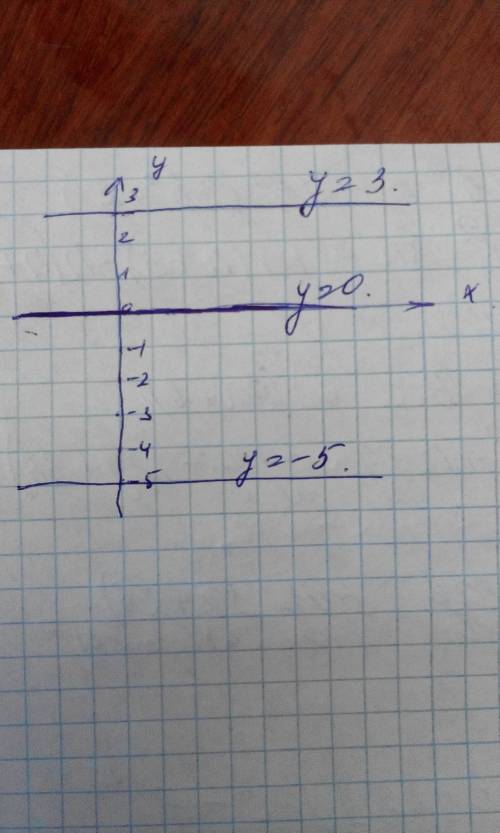 y
3 y = 3.
2
1
0 y = 0. x
-1
-2
-3
-4
-5 y = -5.